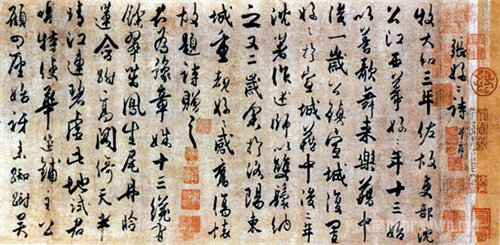 張好好詩并序
牧大和三年佐故吏部沈
公江西幕好好年十三始
以善歌舞来樂籍中
後一歲公鎮宣城復置
好好於宣城籍中後二年
沈著作述師以雙鬟納
之又二歲余於洛陽東
城重覩好好感舊傷懷
故題詩贈之
君為豫章姝十三纔有
餘翠茁鳳生尾丹臉
蓮含跗高閣倚天半
晴江連碧虛此地試君
唱特使華筵鋪主公
顧四座始訝来踟蹰吴